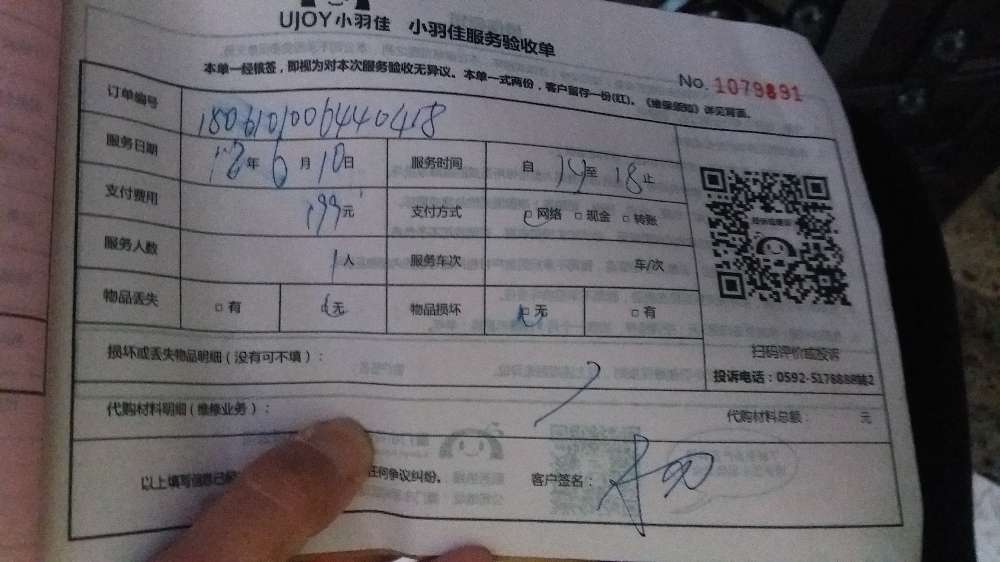 UJOY小羽佳 小羽佳服务验收单
本单一经核签，即视为对本次服务验收无异议。本单一式两份，客户留存一份(红)。《维保须知》详见背面。
No. 1079891
订单编号 1806101006440418
服务日期 18年 6月 10日 服务时间 自 14 至 18 止
支付费用 199元 支付方式 □网络 □现金 □转账
服务人数 1人 服务车次 车/次
物品丢失 □有 □无 物品损坏 □无 □有
扫码评价或投诉
投诉电话：0592-5178888转2
损坏或丢失物品明细（没有可不填）：
代购材料明细（维修业务）： 代购材料总额： 元
以上填写信息已 任何争议纠纷。 客户签名：